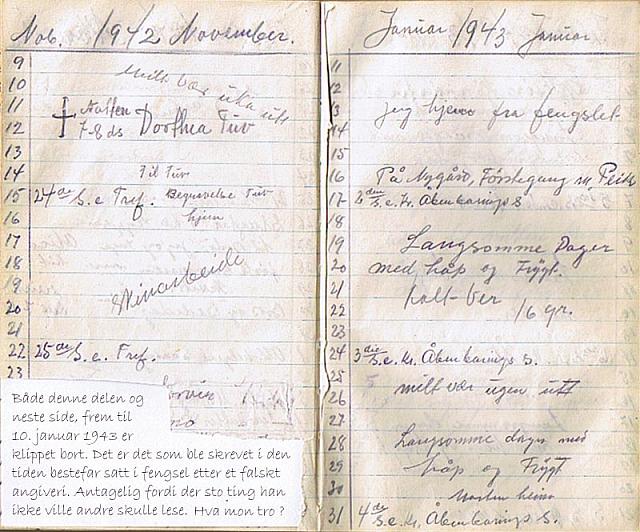 Nob. 1942 November.
9
10
Mildt vær uka ut
11 Natten
12 7-8 ds Dorthea Tuv
13
14 Til Tuv
15 24de S. e Tref. Begravelse Tuv
16 hjem
17
18
19 Skinarbeide
20
21
22 25de S. e. Tref.
23
Både denne delen og
neste side, frem til
10. januar 1943 er
klippet bort. Det er det som ble skrevet i den
tiden bestefar satt i fengsel etter et falskt
angiveri. Antagelig fordi der sto ting han
ikke ville andre skulle lese. Hva mon tro ?
Januar 1943 Januar
11
12
13 jeg hjem fra fengslet
14
15
16 På Nygård, Förstegang m, Peik
17 2den S. e. Kr. Åbenbarings S
18
19 Langsomme Dager
20 med håp og Frygt.
21 kalt-ver
22 16 gr.
23
24 3die S. e. Kr. Åbenbarings S.
25
26 mildt vær ugen utt
27
28 Langsomme dager med
29 håp og Frygt
30 Morten heim
31 4de S. e. Kr. Åbenbarings S.